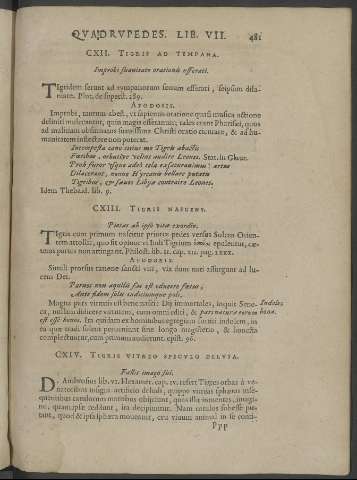 QUADRUPEDES. LIB. VII. 481
CXII. TIGRIS AD TYMPANA.
Improbi suavitate orationis efferati.
Tigridem ferunt ad tympanorum sonum efferari, seipsum
Plut. de superst. 289.
APODOSIS.
Improbi, tantum abest, ut sapienti oratione quasi musica actione
deliniti mulceantur, quin magis efferantur; tales erant Pharisæi, quos
ad malitiam obfirmatos suavissima Christi oratio e, & ad hu-
manitatem inflectere non poterat.
cano totius me Tigris abactis
Fœtibus, orbativæ velint audire Leones. Stat. in Glauc.
Proh furor usque adeò tela exacuere
Dilacerant, nunc Hyrcanis bellare putatis
Tigribus, & sævos Libyæ contraire Leones.
Idem Thebaid. lib. 9.
CXIII. TIGRIS NASCENS.
Pietas ab ipsâ vitæ exordio.
Tigris cum primum nascitur priores pedes versus Solem Orien-
tem attollit, quo fit opinor ut Indi Tigrium catulos epulentur, cæ-
teros partus non attingant. Philost. lib. 11. cap. 111. pag. lxxx.
APODOSIS.
Simili prorsus ratione sancti viri, vix dum nati assurgunt ad lu-
cem Dei.
Parvus non aquilis fas est educere fœtus,
Ante fidem solis judiciumque poli.
Magna pars virtutis est bene nasci: Dij immortales, inquit Sene-
ca, nullam didicere virtutem, cum omni editi, & pars naturæ eorum
est esse bonos. Ita quidam ex hominibus egregiam sortiti indolem, in
ea quæ tradi solent perveniunt sine longo magisterio, & honesta
complectuntur, cum primum audierunt. epist. 96.
Indoles
bona.
CXIV. TIGRIS VITREO SPECULO DELUSA.
Fallit imago sui.
D. Ambrosius lib. vi. Hexamer. cap. iv. refert Tigres orbas à ve-
natoribus magno artificio deludi, quippe vitreas sphæras inse-
quentibus catulorum matribus objiciunt, quos illæ intuentes, imagi-
ne, quam ipsæ reddunt, ita decipiuntur. Nam catulos subesse pu-
tant, quod & ipsa sphæra moveatur, ceu vivum animal in se conti-
Ppp